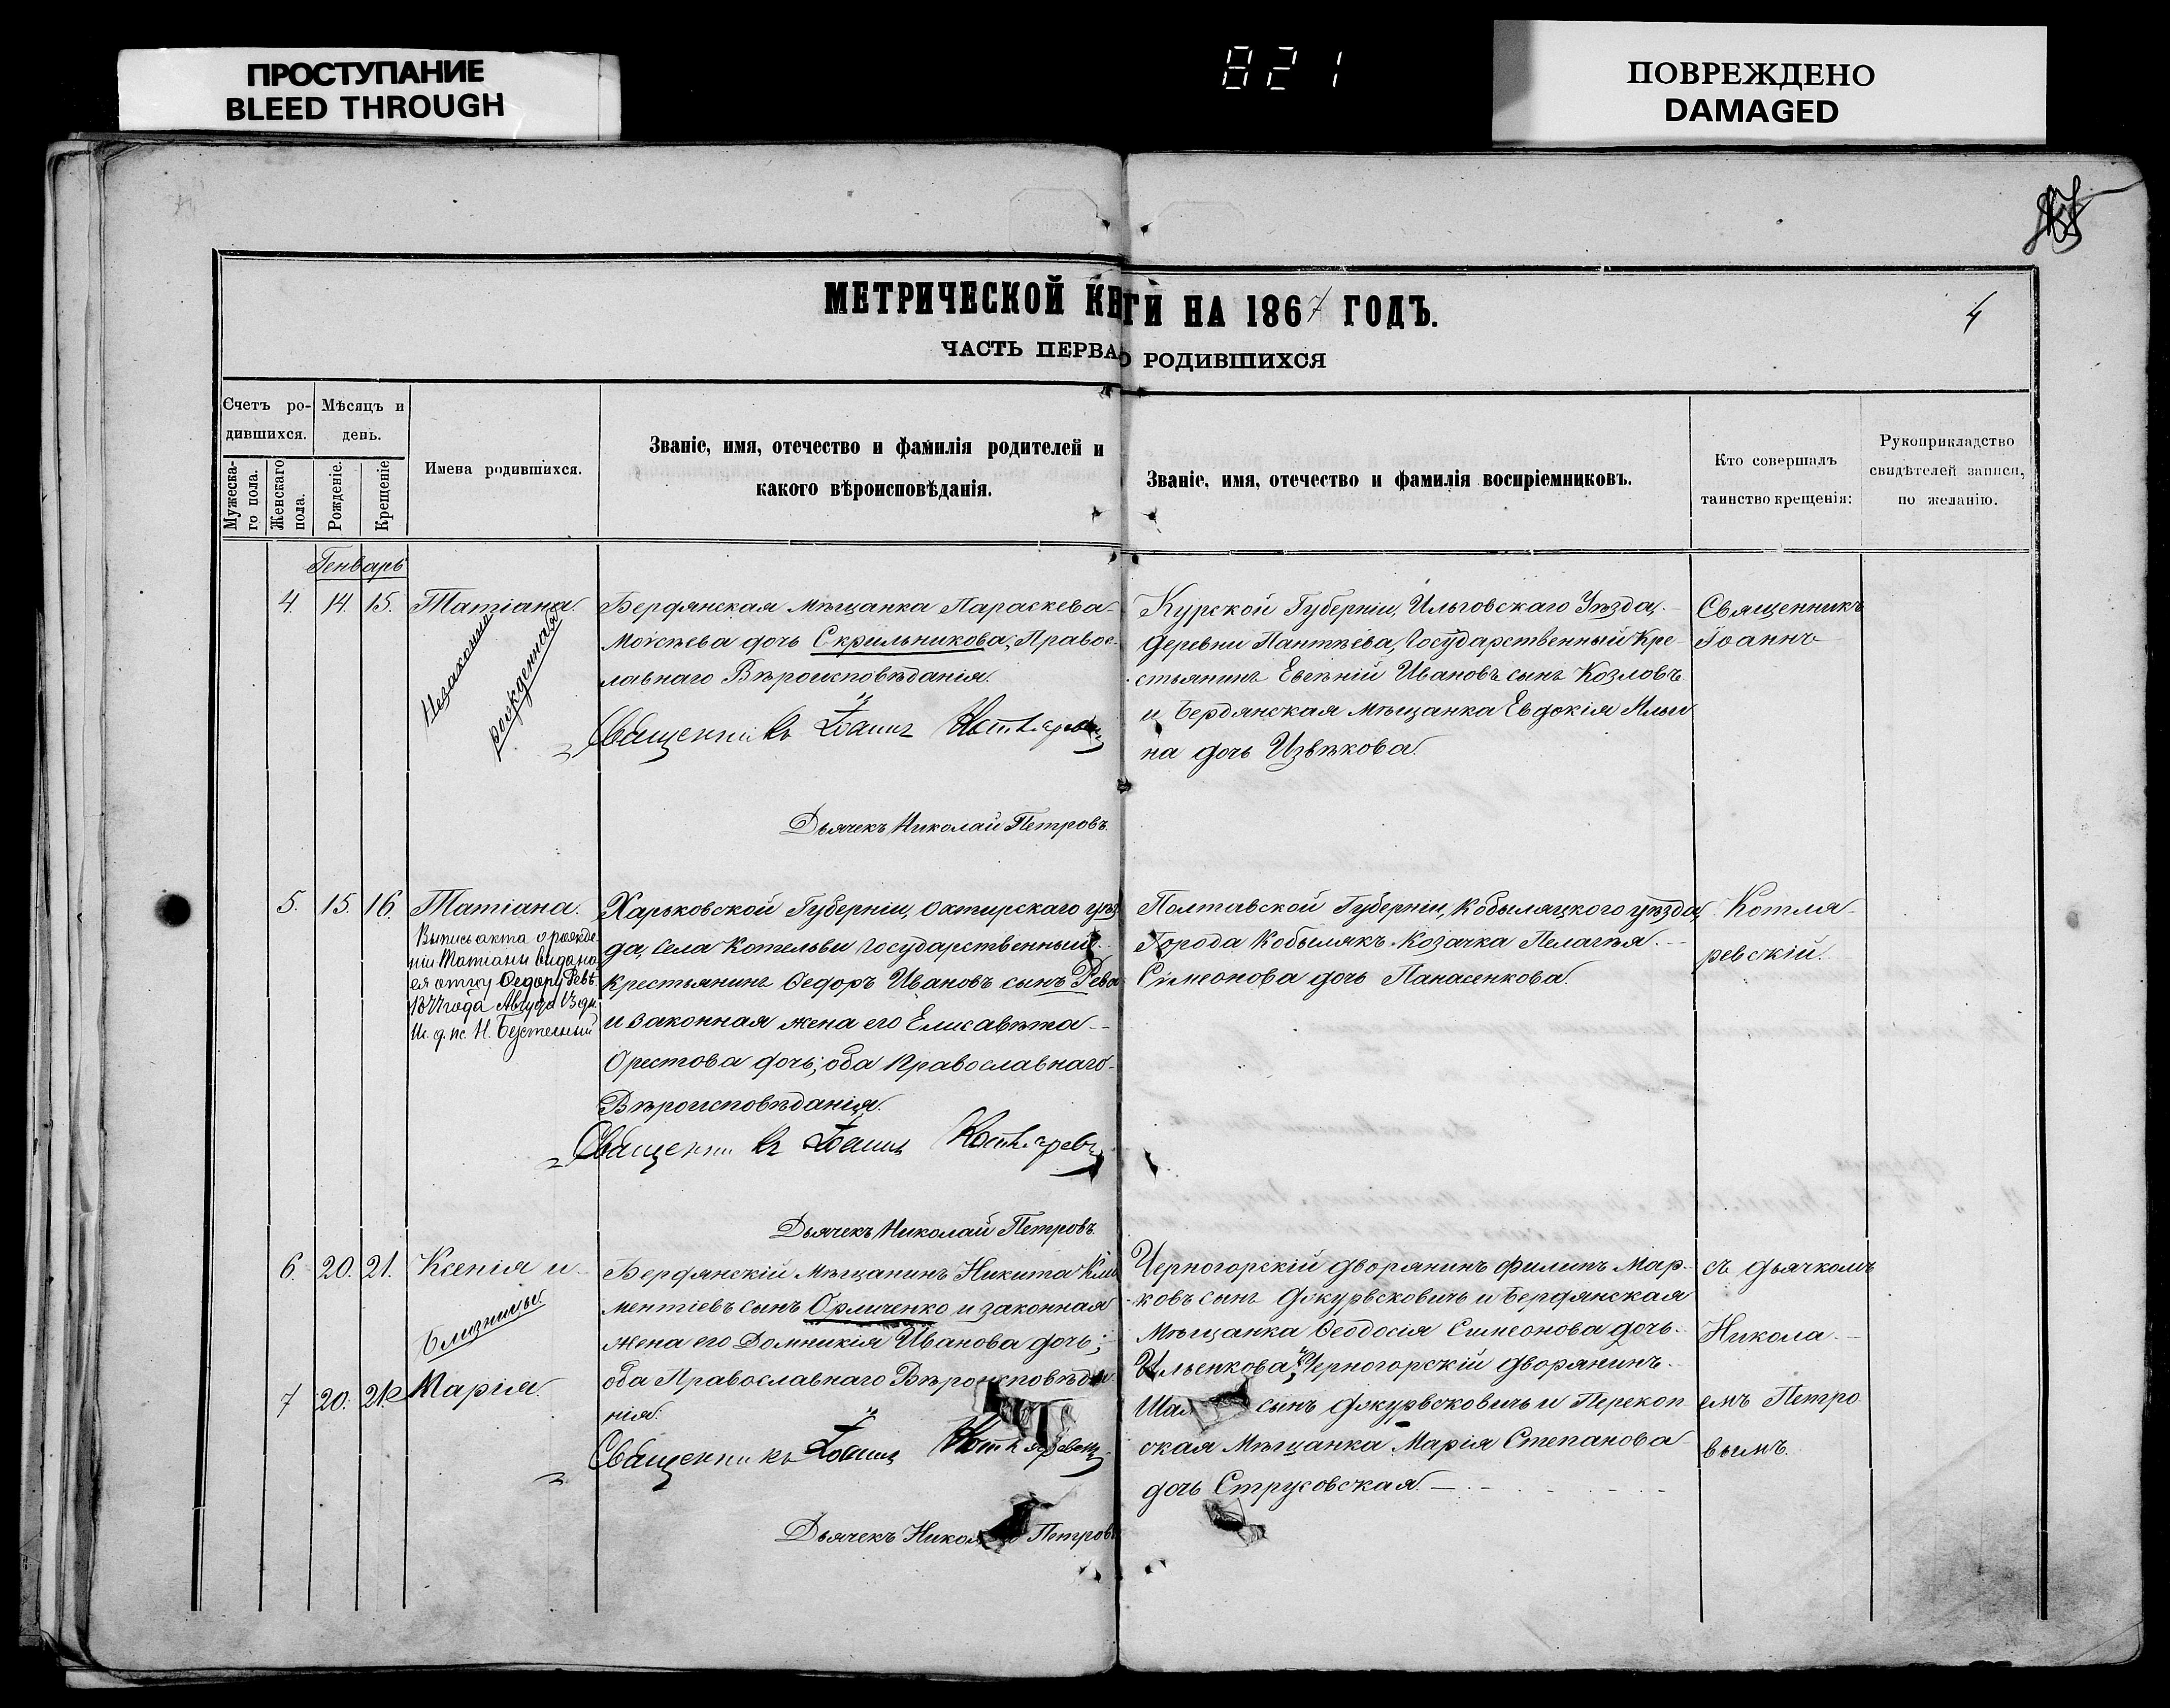 ПРОСТУПАНИЕ
BLEED THROUGH
821
ПОВРЕЖДЕНО
DAMAGED
МЕТРИЧЕСКОЙ КН ГИ НА 1867 ГОДЪ.
4
ЧАСТЬ ПЕРВА О РОДИВШИХСЯ
Счетъ ро-
дившихся.
Мужеска-
го пола.
Женскаго
пола.
Мѣсяцъ и
день.
Рожденіе.
Крещеніе
Имена родившихся.
Званіе, имя, отечество и фамилія родителей и
какого вѣроисповѣданія.
Званіе, имя, отечество и фамилія воспріемниковъ.
Кто совершалъ
таинство крещенія:
Рукоприкладство
свидѣтелей записи,
по желанію.
Генварь
4. 14. 15. Татіана.
Незаконно
рожденная
Бердянская мѣщанка Параскева
Моисѣева дочь Скрильникова, Правос-
лавнаго Вѣроисповѣданія.
Священникъ Іоаннъ
Дьячекъ Николай Петровъ.
Курской Губерніи, Ильговскаго Уѣзда,
деревни Пантѣева, Государственный Кре-
стьянинъ Евгѣній Ивановъ сынъ Козловъ
и Бердянская мѣщанка Евдокія Ильи
на дочь Извѣкова.
Священникъ
Іоаннъ
5. 15. 16. Татіана.
Выпись акта о рожде-
ніи Татіаны видана
ея отцу Федору Ревѣ
1877 года Августа 13 дн.
И. д. пс. Н.
Харьковской Губерніи, Охтирскаго уѣз-
да, села Котельви государственный
крестьянинъ Федоръ Ивановъ сынъ Рева
и законная жена его Елисавѣта
Орестова дочь; оба Православнаго
Вѣроисповѣданія.
Священникъ Іоаннъ
Дьячекъ Николай Петровъ.
Полтавской Губерніи, Кобыляцкого уѣзда,
Города Кобылякъ Козачка Пелагѣя
Симеонова дочь Панасенкова.
Котля-
ревскій.
6. 20. 21. Ксенія и
близницы
7 20. 21. Марія.
Бердянскій мѣщанинъ Никита Кли
ментіевъ сынъ Орличенко и законная
жена его Домникія Иванова дочь;
оба Православнаго Вѣроисповѣда
нія.
Священникъ Іоаннъ
Дьячекъ Николай Петровъ
Черногорскій дворянинъ Филипъ Мар-
ковъ сынъ и Бердянская
мѣщанка Феодосія Симеонова дочь
Ильенкова, Черногорскій дворянинъ
сынъ и Перекоп
ская мѣщанка Марія Степанова
дочь Струковская.
съ дьячкомъ
Никола-
емъ Петро
вымъ.